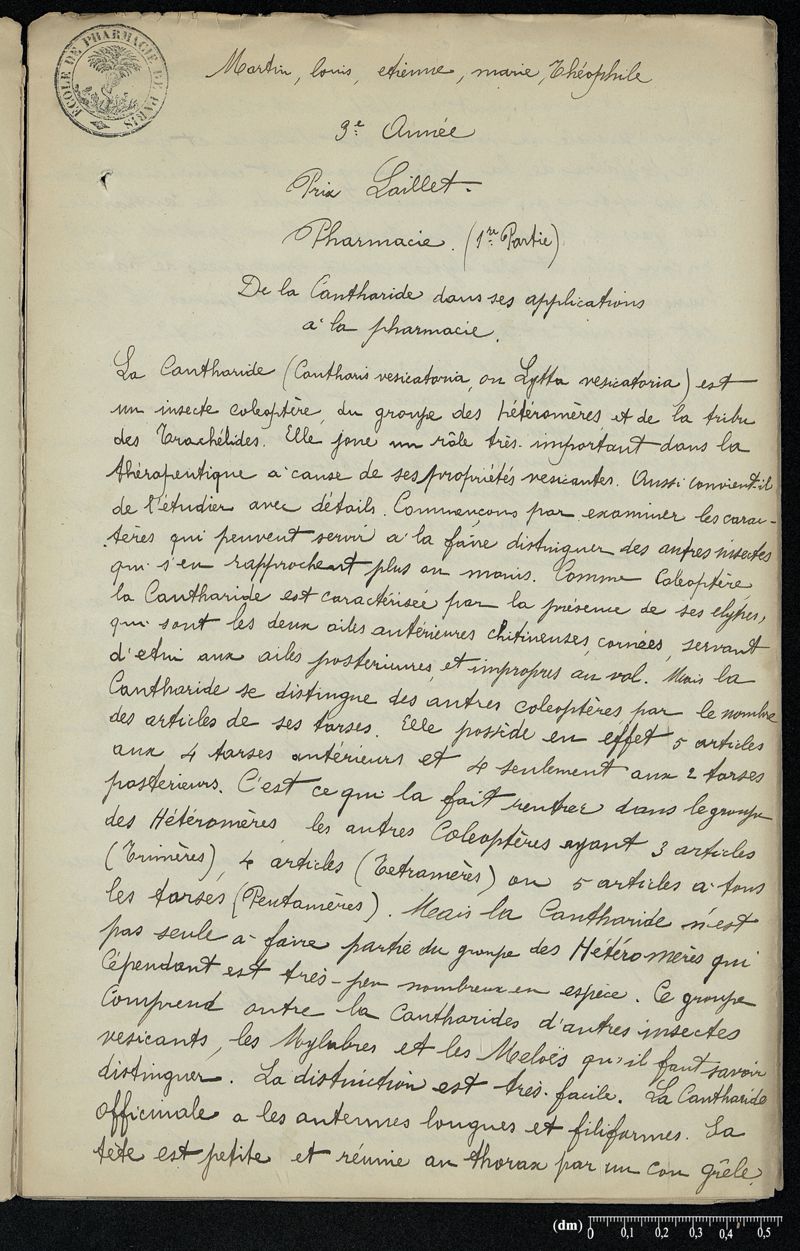 ECOLE DE PHARMACIE DE PARIS
Martin, louis, etienne, marie, Théophile
3e Année
Prix Laillet.
Pharmacie. (1re Partie)
De la Cantharide dans ses applications
à la pharmacie.
La Cantharide (Cantharis vesicatoria, ou Lytta vesicatoria) est
un insecte coleoptère, du groupe des hétéromères et de la tribu
des Trachélides. Elle joue un rôle très-important dans la
thérapeutique à cause de ses propriétés vesicantes. Aussi convient-il
de l'étudier avec détails. Commençons par examiner les carac-
tères qui peuvent servir à la faire distinguer des autres insectes
qui s'en rapprochent plus ou moins. Comme Coleoptère,
la Cantharide est caractérisée par la présence de ses elytres,
qui sont les deux ailes antérieures chitineuses, cornées, servant
d'etui aux ailes posterieures, et impropres au vol. Mais la
Cantharide se distingue des autres coleoptères par le nombre
des articles de ses tarses. Elle possède en effet 5 articles
aux 4 tarses antérieurs et 4 seulement aux 2 tarses
posterieurs. C'est ce qui la fait rentrer dans le groupe
des Hétéromères, les autres Coleoptères ayant 3 articles
(Trimères), 4 articles (Tetramères) ou 5 articles à tous
les tarses (Pentamères). Mais la Cantharide n'est
pas seule à faire partie du groupe des Hétéromères qui
cépendant est très-peu nombreux en espèce. Ce groupe
comprend outre la Cantharides d'autres insectes
vesicants, les Mylabres et les Meloës qu'il faut savoir
distinguer. La distinction est très-facile. La Cantharide
officinale a les antennes longues et filiformes. La
tête est petite et réunie au thorax par un cou grêle.
(dm) 0 0,1 0,2 0,3 0,4 0,5